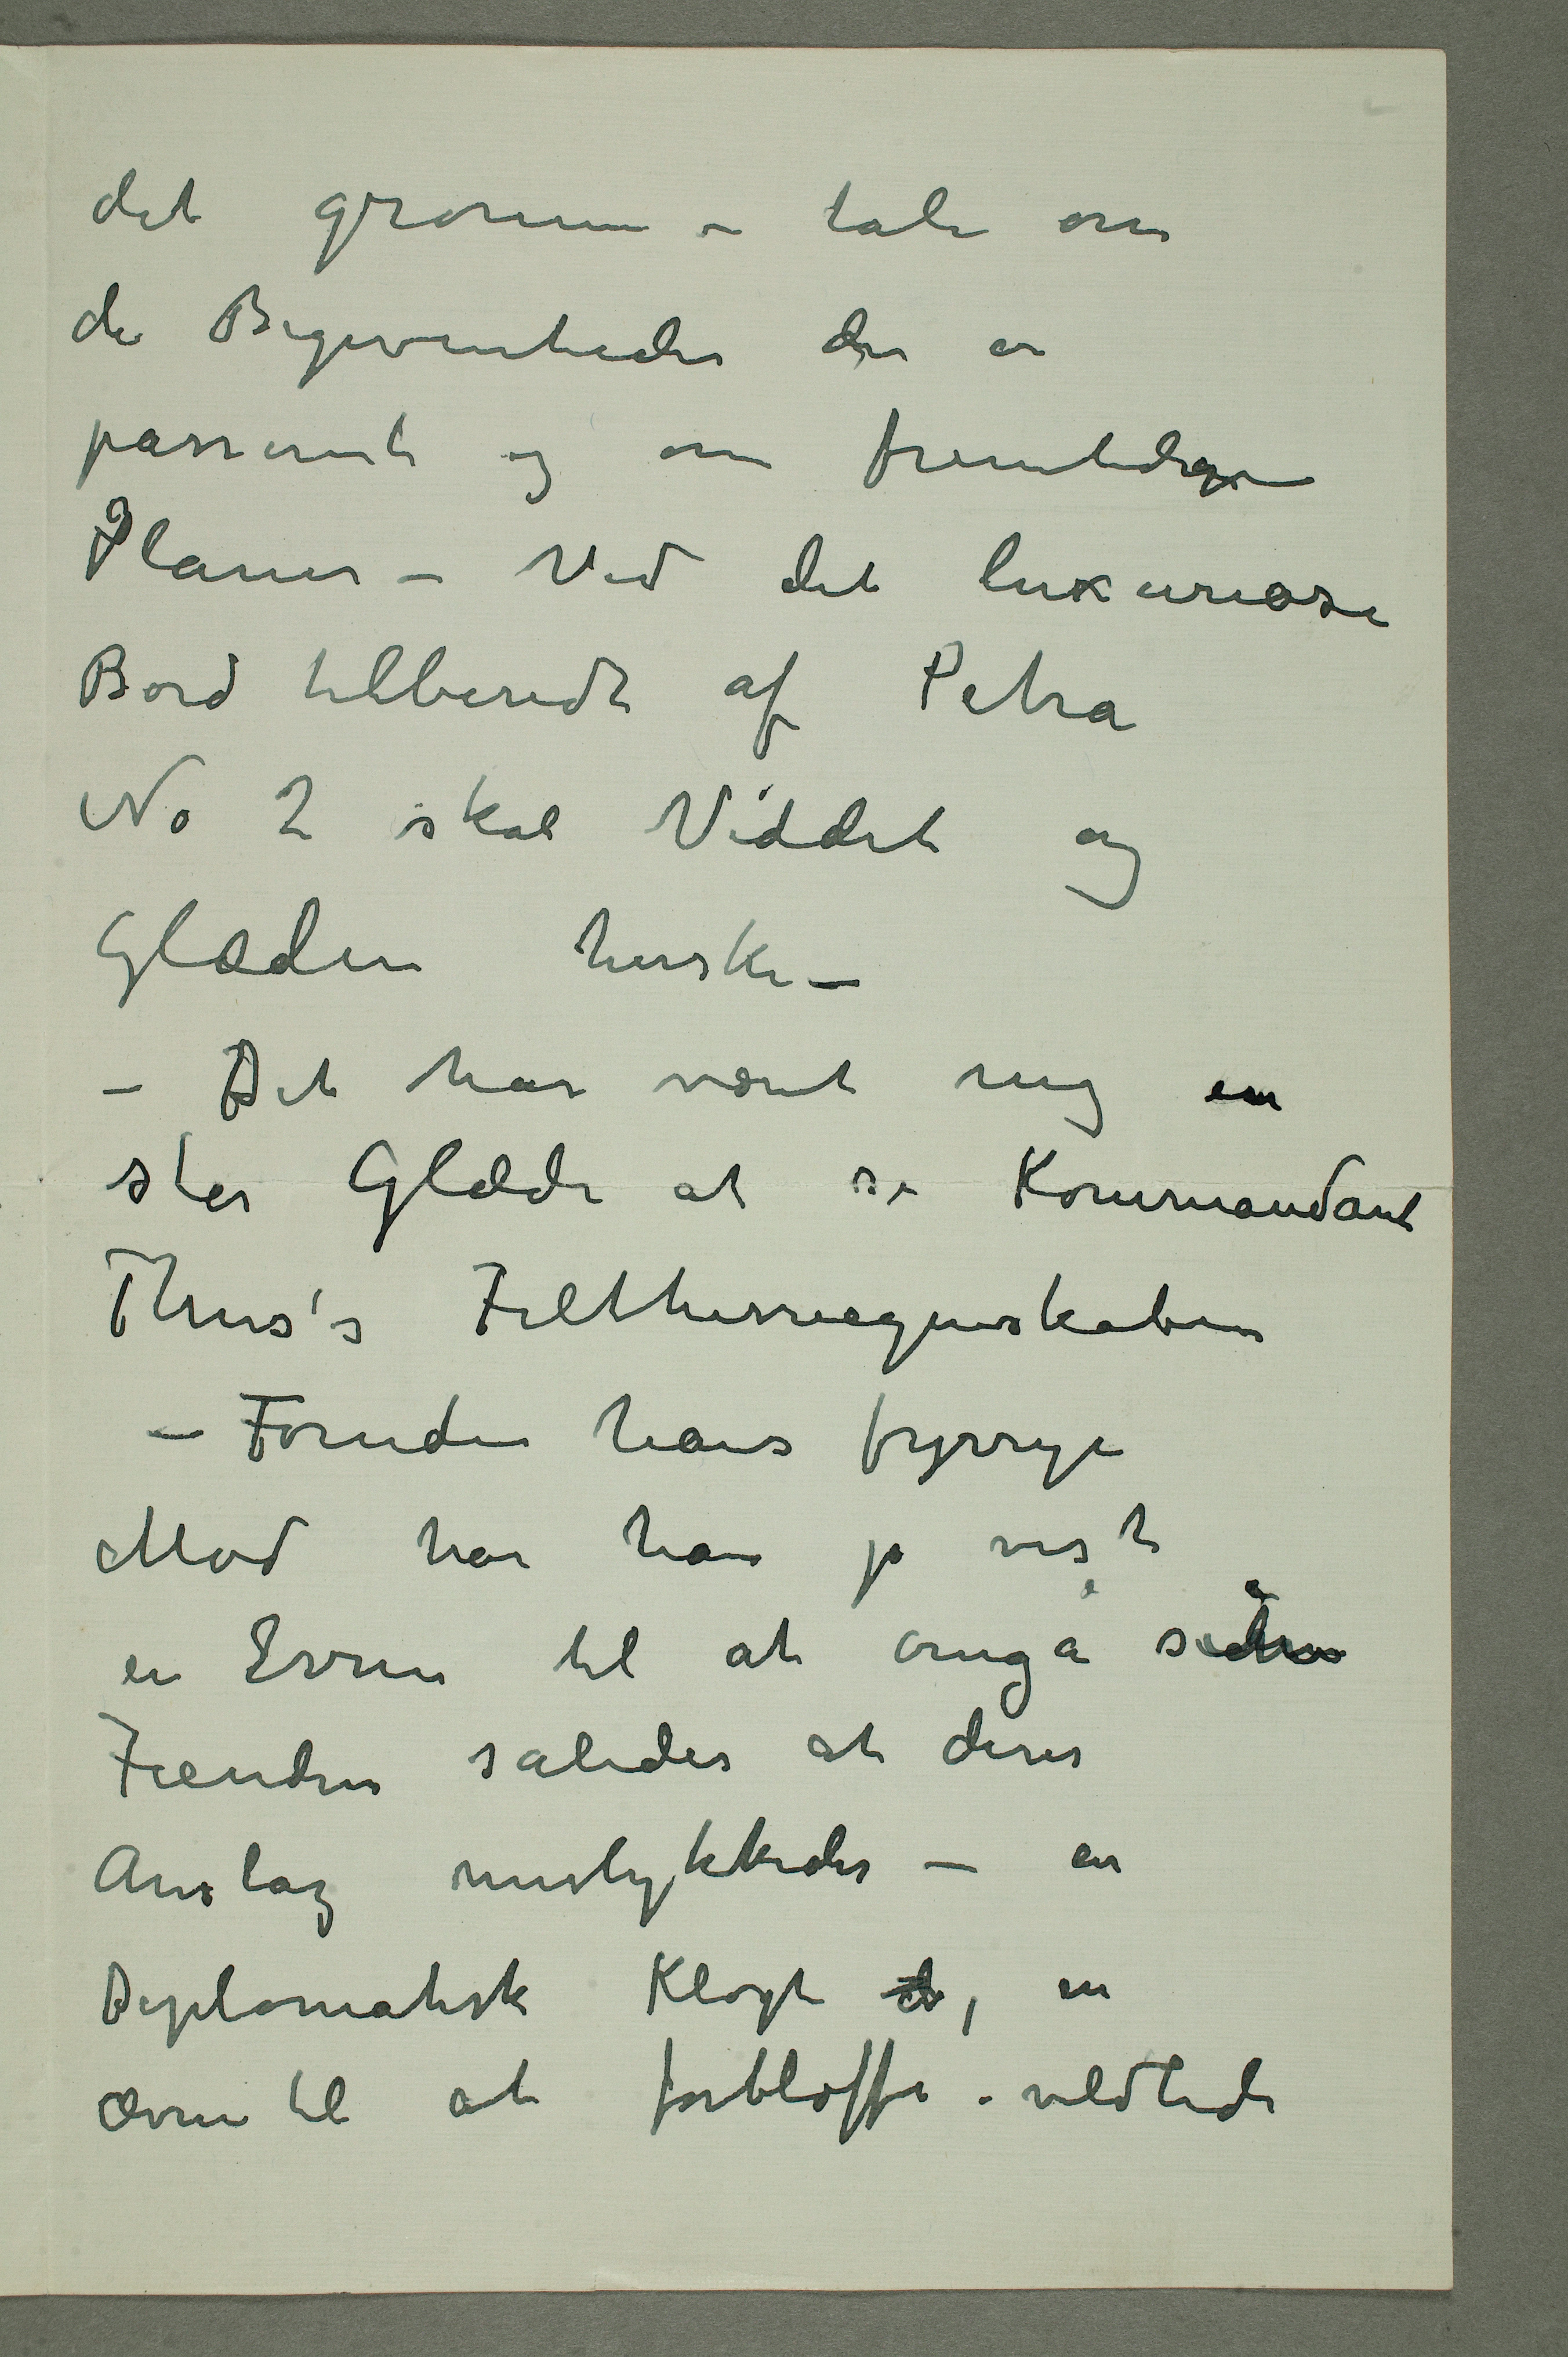 det grønne – tale om
de Begivenheder der er
passerent og om fremtidige
Planer – Ved det luxuriøse
Bord tilberedt af Petra
No 2 skal Viddet og
Glæden herske –
– Det har været mig en
stor Glæde at se Kommandant
Thiis's Feltherreegenskaber
– Foruden hans fyrrige
Mod har han jo vist
en Evne til at omgå
Fienden således at deres
Anslag mislykkedes – en
Diplomatisk Kløgt, en
ævne til at forbløffe – vildlede